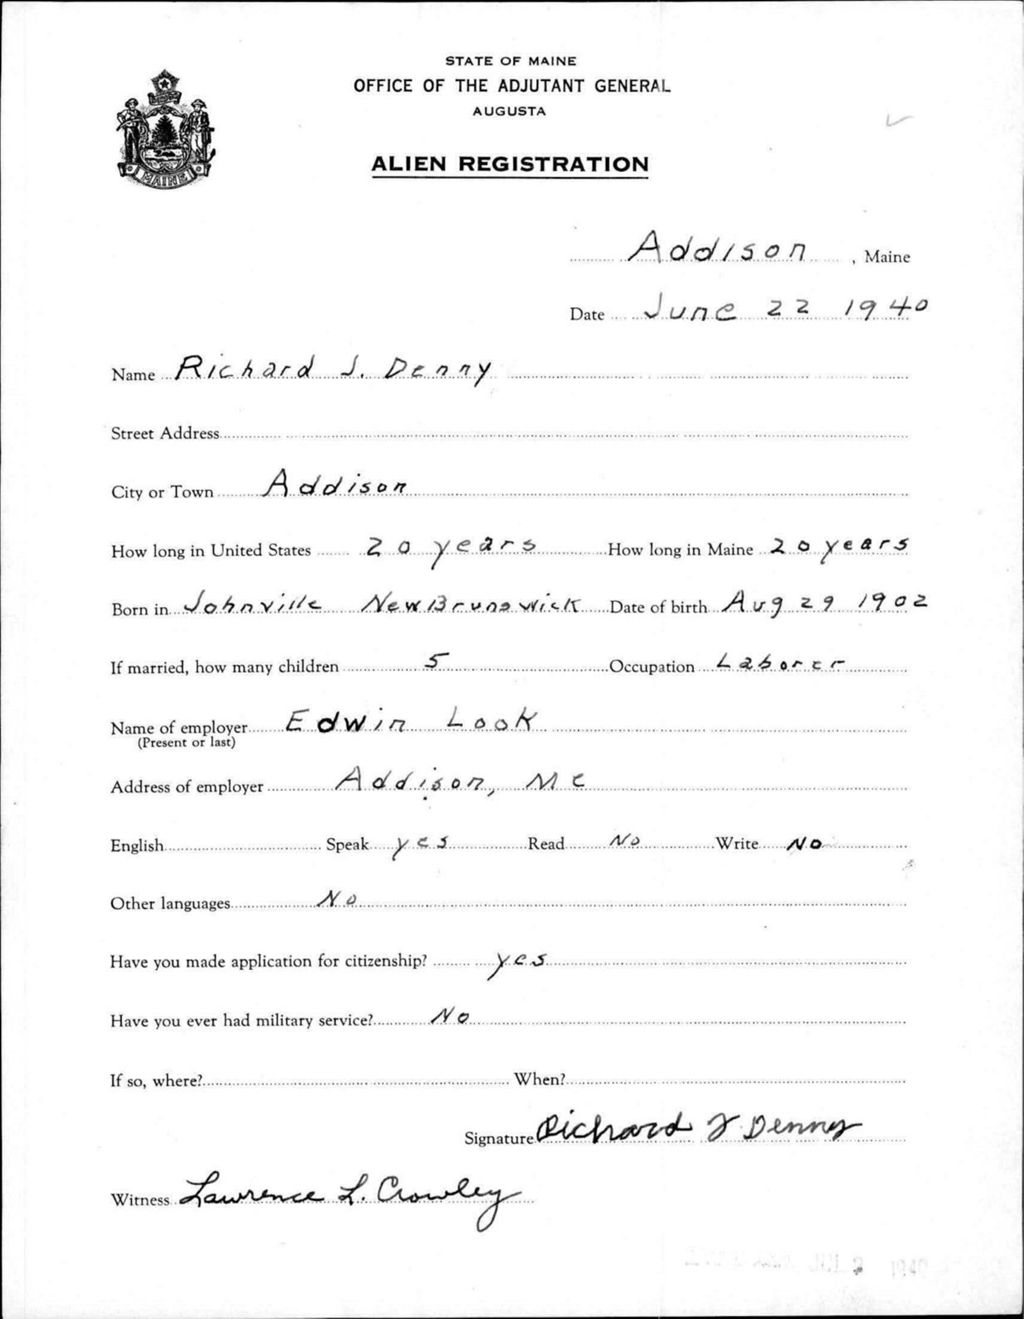 STATE OF MAINE
OFFICE OF THE ADJUTANT GENERAL
AUGUSTA
ALIEN REGISTRATION
MAINE
Addison, Maine
Date June 22 1940
Name Richard J. Denny
Street Address
City or Town Addison
How long in United States 20 years How long in Maine 20 years
Born in Johnville New Brunswick Date of birth Aug 29 1902
If married, how many children 5 Occupation Laborer
Name of employer Edwin Look
(Present or last)
Address of employer Addison, Me
English Speak yes Read No Write No
Other languages No
Have you made application for citizenship? yes
Have you ever had military service? No
If so, where? When?
Signature Richard J Denny
Witness Lawrence L. Crowley